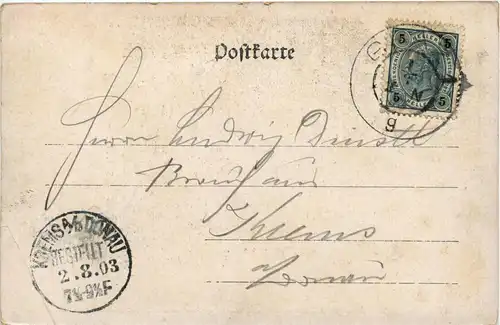 Postkarte
5 5
5 5
9
Herrn Ludwig Dinstl
Brauhaus
Krems
Donau
KREMS A/D DONAU
BESTELLT
2.8.03
7½-9½F